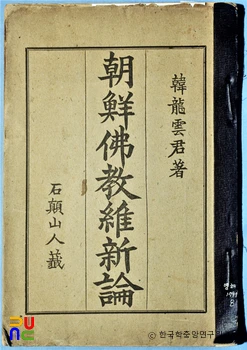 韓龍雲君著
朝鮮佛教維新論
石顚山人藏
ⓒ 한국학중앙연구